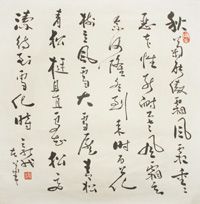 秋菊能傲霜风霜重
恶本性能耐寒风霜其
奈何隆冬到来时百花
风雪大雪压青松
青松挺且直要知松高
洁待到雪化时